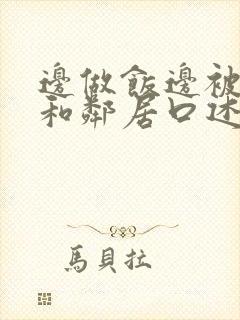 邊做飯邊被
和鄰居口述
馬貝拉